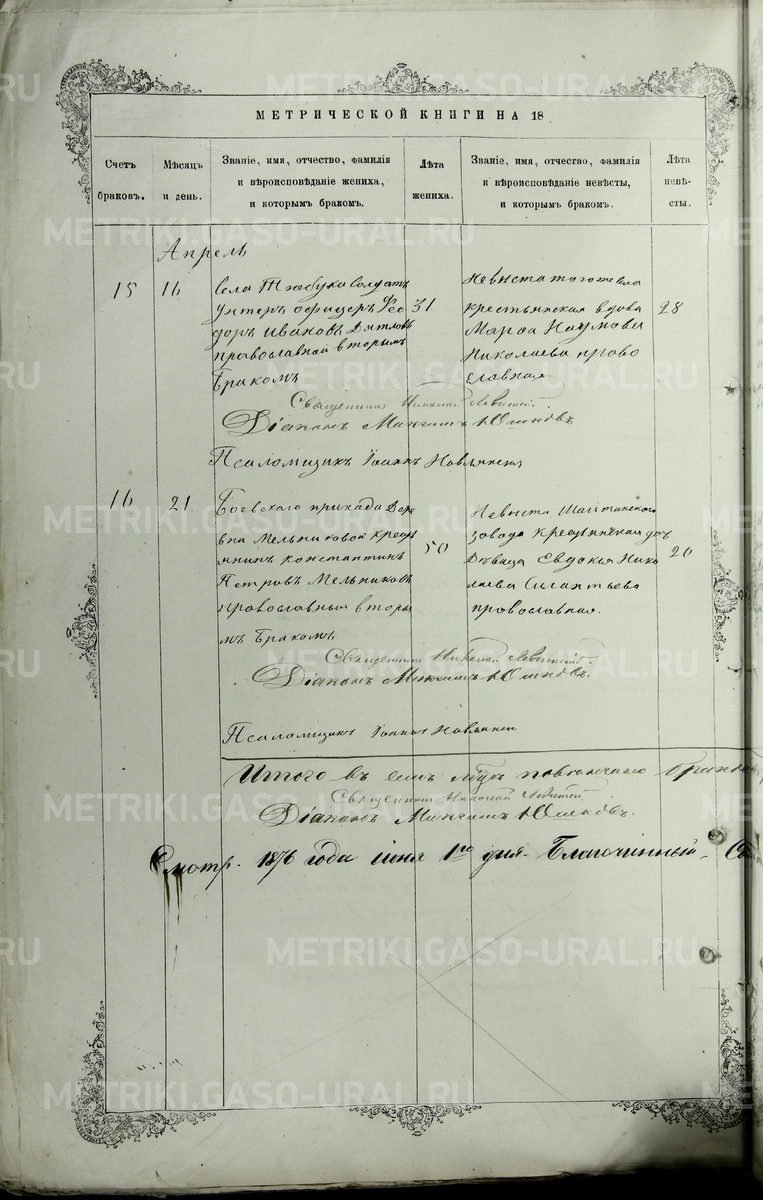 МЕТРИЧЕСКОЙ КНИГИ НА 18
Счетъ браковъ.
Мѣсяцъ и день.
Званіе, имя, отчество, фамилія
и вѣроисповѣданіе жениха,
и которымъ бракомъ.
Лѣта жениха.
Званіе, имя, отчество, фамилія
и вѣроисповѣданіе невѣсты,
и которымъ бракомъ.
Лѣта невѣ-
сты.
Апрель
15
16
села солдатъ
унтеръ офицеръ Фео
доръ Ивановъ Дятловъ
православной вторымъ
бракомъ
31
Невѣста тогоже села
крестьянская вдова
Марфа Наумова
Николаева право
славная
28
Священникъ Николай Левитскій.
Діаконъ Максимъ Юшковъ
Псаломщикъ Іоаннъ
16
21
Боевскаго прихода Дере
вни Мельниковой крестья
нинъ Константинъ
Петровъ Мельниковъ
православный вторы
мъ бракомъ
50
Невѣста Шайтанскаго
завода крестьянская дочь
Дѣвица Евдокья Нико
лаева Силантьева
православная.
20
Священникъ Николай Левитскій.
Діаконъ Максимъ Юшковъ.
Псаломщикъ Іоаннъ
Итого въ семъ повѣнчано браков
Священникъ Николай Левитскій
Діаконъ Максимъ Юшковъ.
Смотр. 1876 года июня 1го дня. Благочинный, Св
METRIKI.GASO-URAL.RU